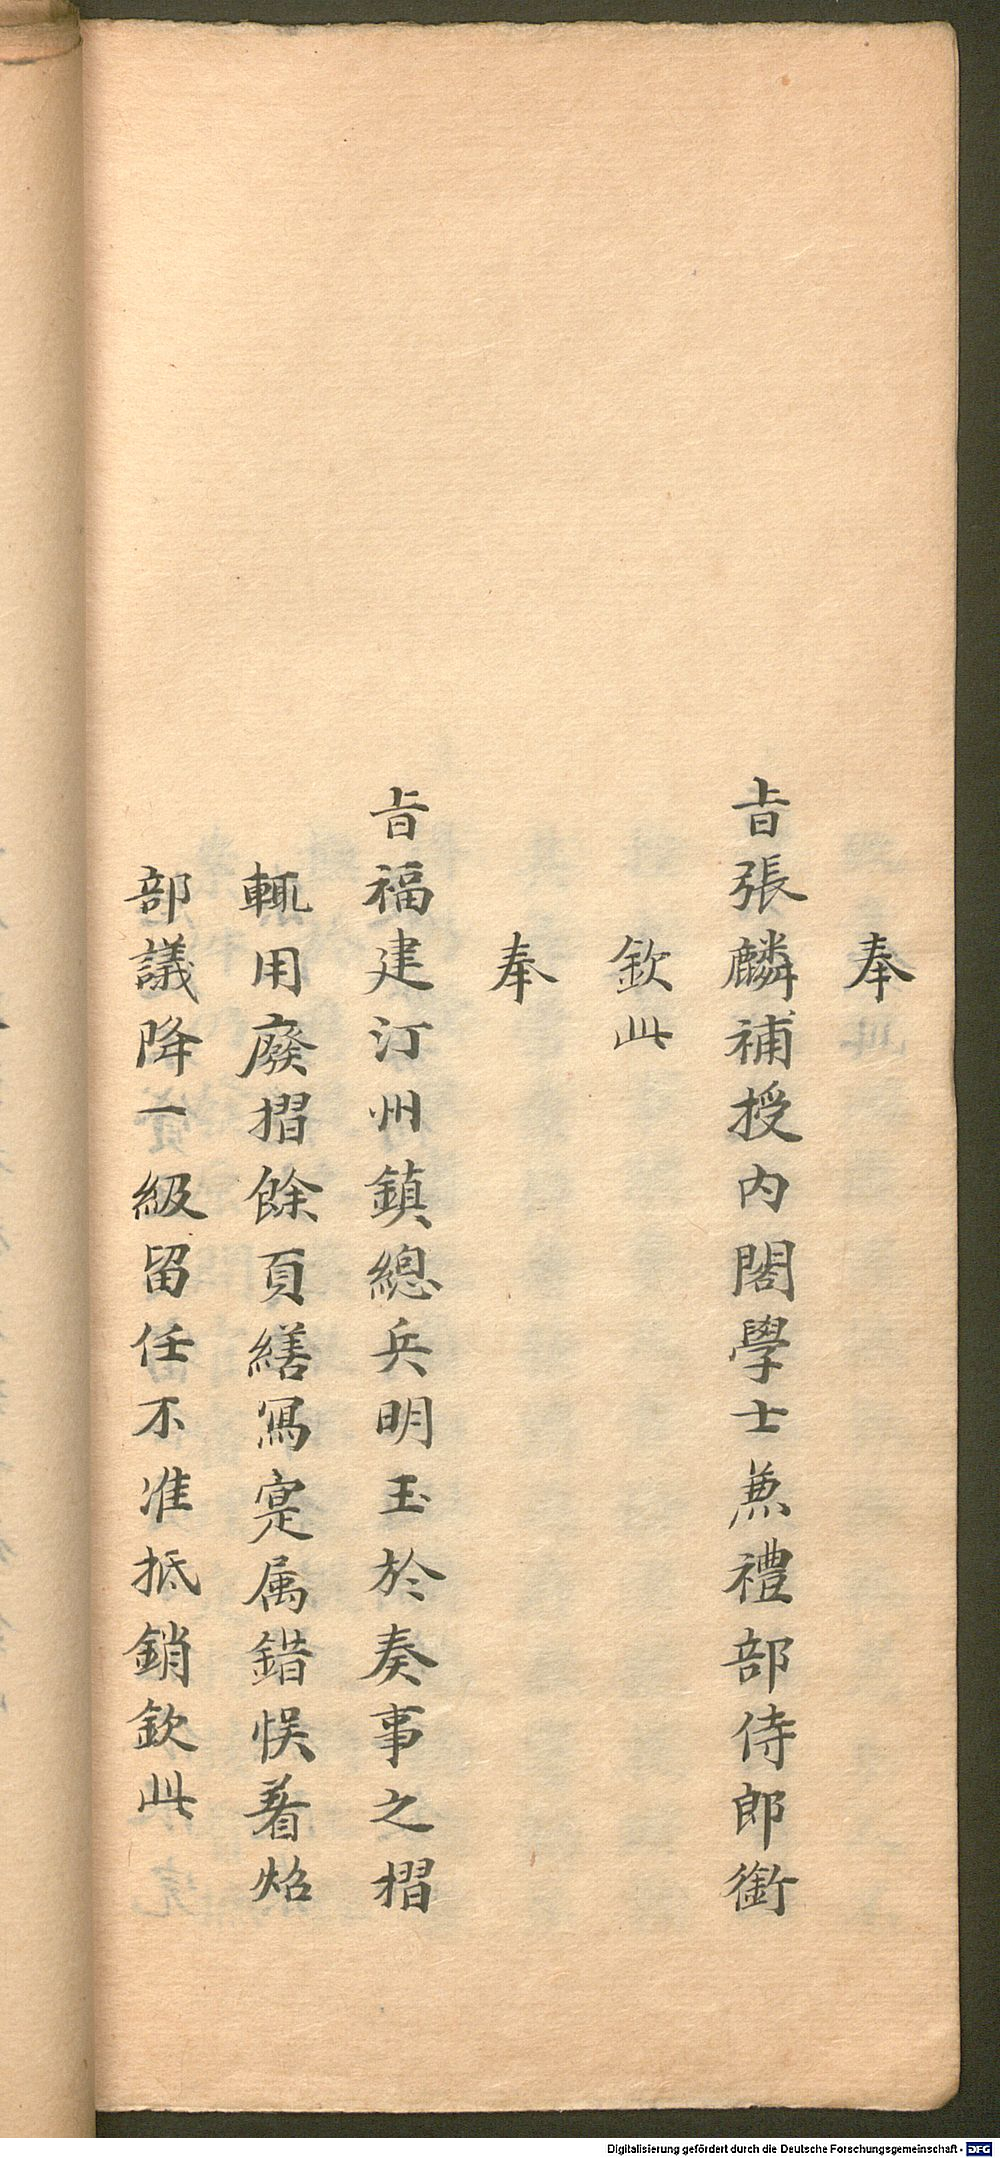 奉
旨張麟補授内閣學士兼禮部侍郎銜
欽此
奉
旨福建汀州鎮總兵明玉於奏事之摺
輒用廢摺餘頁繕寫寔属錯悮着炤
部議降一級留任不准抵銷欽此
Digitalisierung gefördert durch die Deutsche Forschungsgemeinschaft - DFG